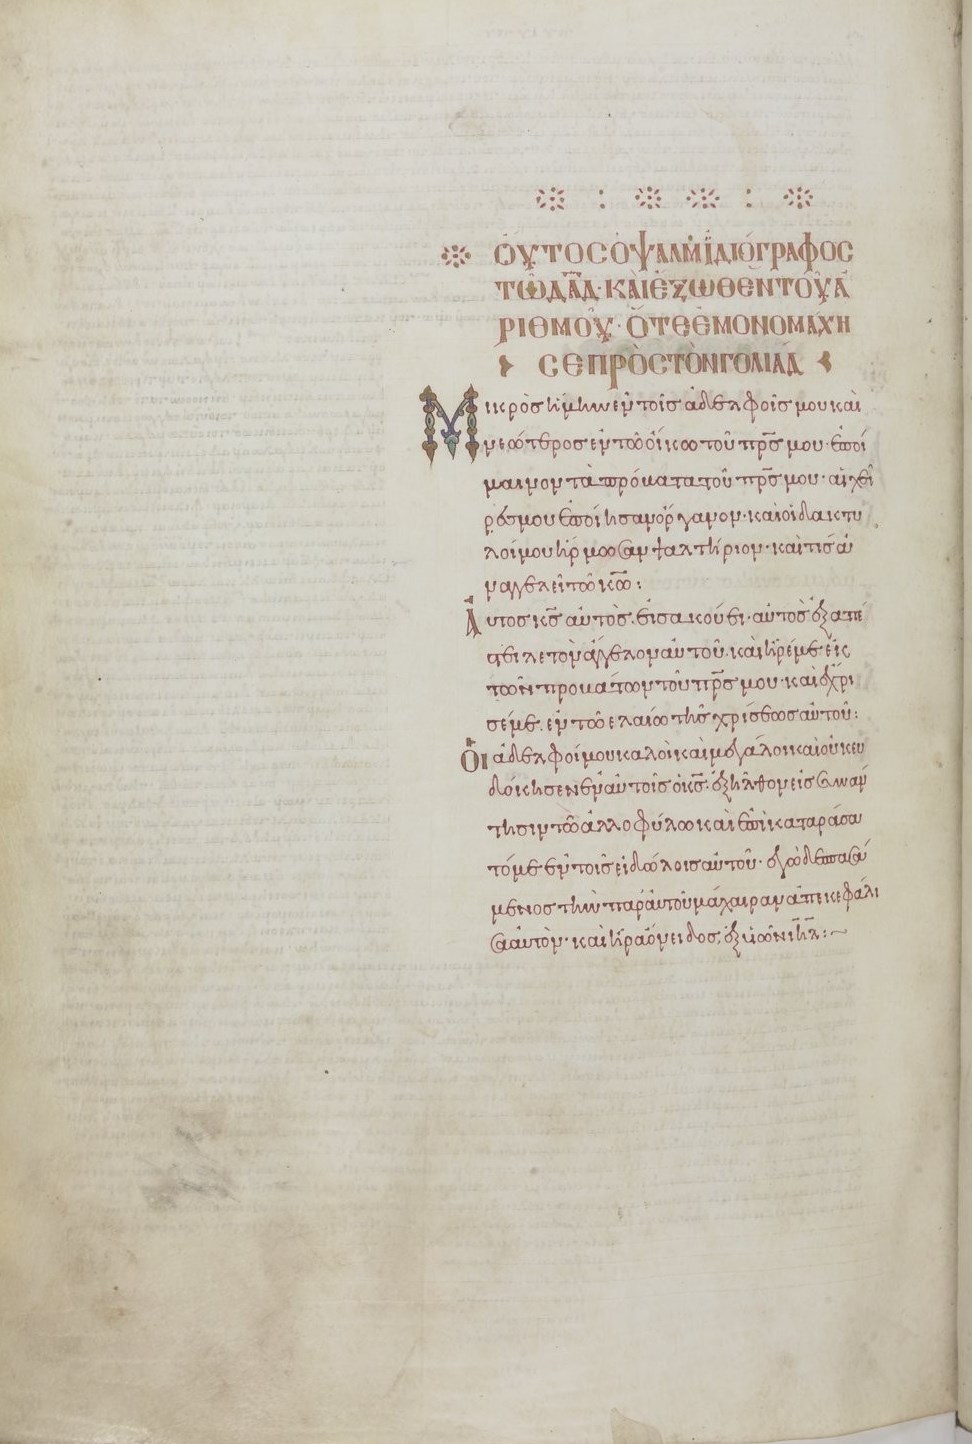 ΟΥΤΟΣ Ὁ ΨΑΛΜ ἸΔΙΟΓΡΑΦΟΣ
ΤΩ ΔΑΔ· ΚΑΙ ἘΞΩΘΕΝ ΤΟΥ Α
ΡΙΘΜΟΥ· ὉΤΕ ΕΜΟΝΟΜΑΧΗ
ΣΕ ΠΡΟΣ ΤΟΝ ΓΟΛΙΑΔ
Μικρὸσ ἤμην ἐν τοῖσ ἀδελφοῖσ μου καὶ
νεώτεροσ ἐν τῶ οἴκω τοῦ πρσ μου· ἐποί
μαινον τὰ πρόβατα τοῦ πρσ μου· αἱ χεῖ
ρέσ μου ἐποίησαν ὄργανον· καὶ οἱ δάκτυ
λοί μου ἥρμοσαν ψαλτήριον· καὶ τίσ ἀ
ναγγελεῖ τῶ κω:
Αὐτοσ κσ αὐτὸσ εἰσακούει· αὐτὸσ ἐξαπέ
στειλε τὸν ἄγγελον αὐτοῦ· καὶ ἦρέ με ἐκ
τῶν προβάτων τοῦ πρσ μου· καὶ ἔχρι
σέ με ἐν τῶ ἐλαίω τῆσ χρίσεωσ αὐτοῦ:
Οἱ ἀδελφοί μου καλοὶ καὶ μεγάλοι καὶ οὐκ ευ
δόκησεν ἐν αὐτοῖσ ὁ κσ· ἐξῆλθον εἰσ συναν
τησιν τῶ ἀλλοφύλω καὶ ἐπικαταράσα
τό με ἐν τοῖσ εἰδώλοισ αὐτοῦ· ἐγὼ δὲ σπασά
μενοσ τὴν παρ αὐτοῦ μάχαιραν ἀπεκεφάλι
σα αὐτὸν· καὶ ἦρα ὄνειδοσ ἐξ υἱῶν ιηλ:~